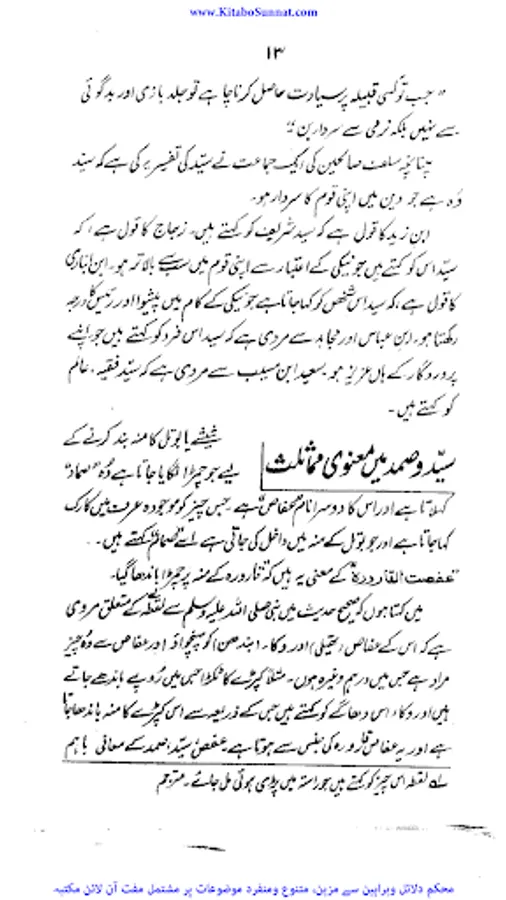 www.KitaboSunnat.com
۱۳
"جب تو کسی قبیلہ پر سیادت حاصل کرنا چاہے تو جلد بازی اور بدگوئی
سے نہیں بلکہ نرمی سے سردار بن"
چنانچہ سلف صالحین کی ایک جماعت نے سیّد کی تفسیر یہ کی ہے کہ سیّد
وُہ ہے جو دین میں اپنی قوم کا سردار ہو۔
ابن زید کا قول ہے کہ سید شریف کو کہتے ہیں۔ زجاج کا قول ہے، کہ
سیّد اس کو کہتے ہیں جو نیکی کے اعتبار سے اپنی قوم میں سب سے بالا تر ہو۔ ابن انباری
کا قول ہے، کہ سید اس شخص کو کہا جاتا ہے جو نیکی کے کام میں پیشوا اور رئیس کا درجہ
رکھتا ہو۔ ابن عباس اور مجاہد سے مروی ہے کہ سید اس فرد کو کہتے ہیں جو اپنے
پروردگار کے ہاں عزیز ہو۔ سعید ابن مسیب سے مروی ہے کہ سیّد فقیہ، عالم
کو کہتے ہیں۔
سیّد و صمد میں معنوی مماثلت
شیشے یا بوتل کا منہ بند کرنے کے
لیے جو چمڑا لگایا جاتا ہے وُہ "صماد"
کہلاتا ہے اور اس کا دوسرا نام "عفاص" ہے۔ جس چیز کو موجودہ عرف میں کارک
کہا جاتا ہے اور جو بوتل کے منہ میں داخل کی جاتی ہے اسے "صمام" کہتے ہیں۔
"عفصت القارورة" کے معنی یہ ہیں کہ قارورہ کے منہ پر چمڑا باندھا گیا۔
میں کہتا ہوں کہ صحیح حدیث میں نبی صلی اللہ علیہ وسلم سے لقطہ کے متعلق مروی
ہے کہ اس کے عفاص (تھیلی) اور وکاء (بندھن) کو پہنچوا دو اور عفاص سے وُہ چیز
مراد ہے جس میں درہم وغیرہ ہوں۔ مثلاً کپڑے کا ٹکڑا جس میں رُوپے باندھے جاتے
ہیں اور وکاء اس دھاگے کو کہتے ہیں جس کے ذریعہ سے اس کپڑے کا منہ باندھا جاتا
ہے اور یہ عفاص قارورہ کی جنس سے ہوتا ہے۔ عفص، سیّد، صمد کے معانی باہم
لہ لقطہ اس چیز کو کہتے ہیں جو راستہ میں پڑی ہوئی مل جائے۔ مترجم
محکم دلائل وبراہین سے مزین، متنوع ومنفرد موضوعات پر مشتمل مفت آن لائن مکتبہ